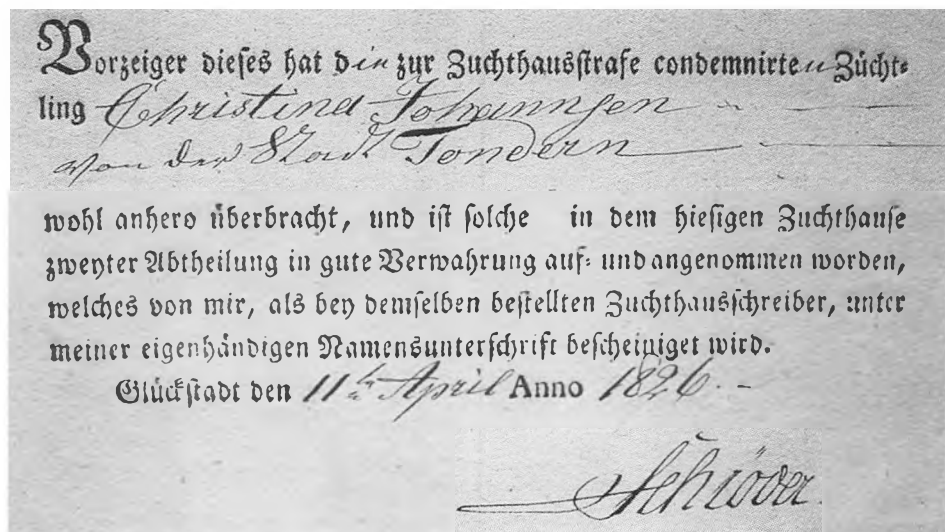 Vorzeiger dieses hat die zur Zuchthausstrafe condemnirten Zücht-
ling Christina Johannsen
von der Stadt Tondern
wohl anhero überbracht, und ist solche in dem hiesigen Zuchthause
zweyter Abtheilung in gute Verwahrung auf- und angenommen worden,
welches von mir, als bey demselben bestellten Zuchthausschreiber, unter
meiner eigenhändigen Namensunterschrift bescheiniget wird.
Glückstadt den 11ten April Anno 1826.